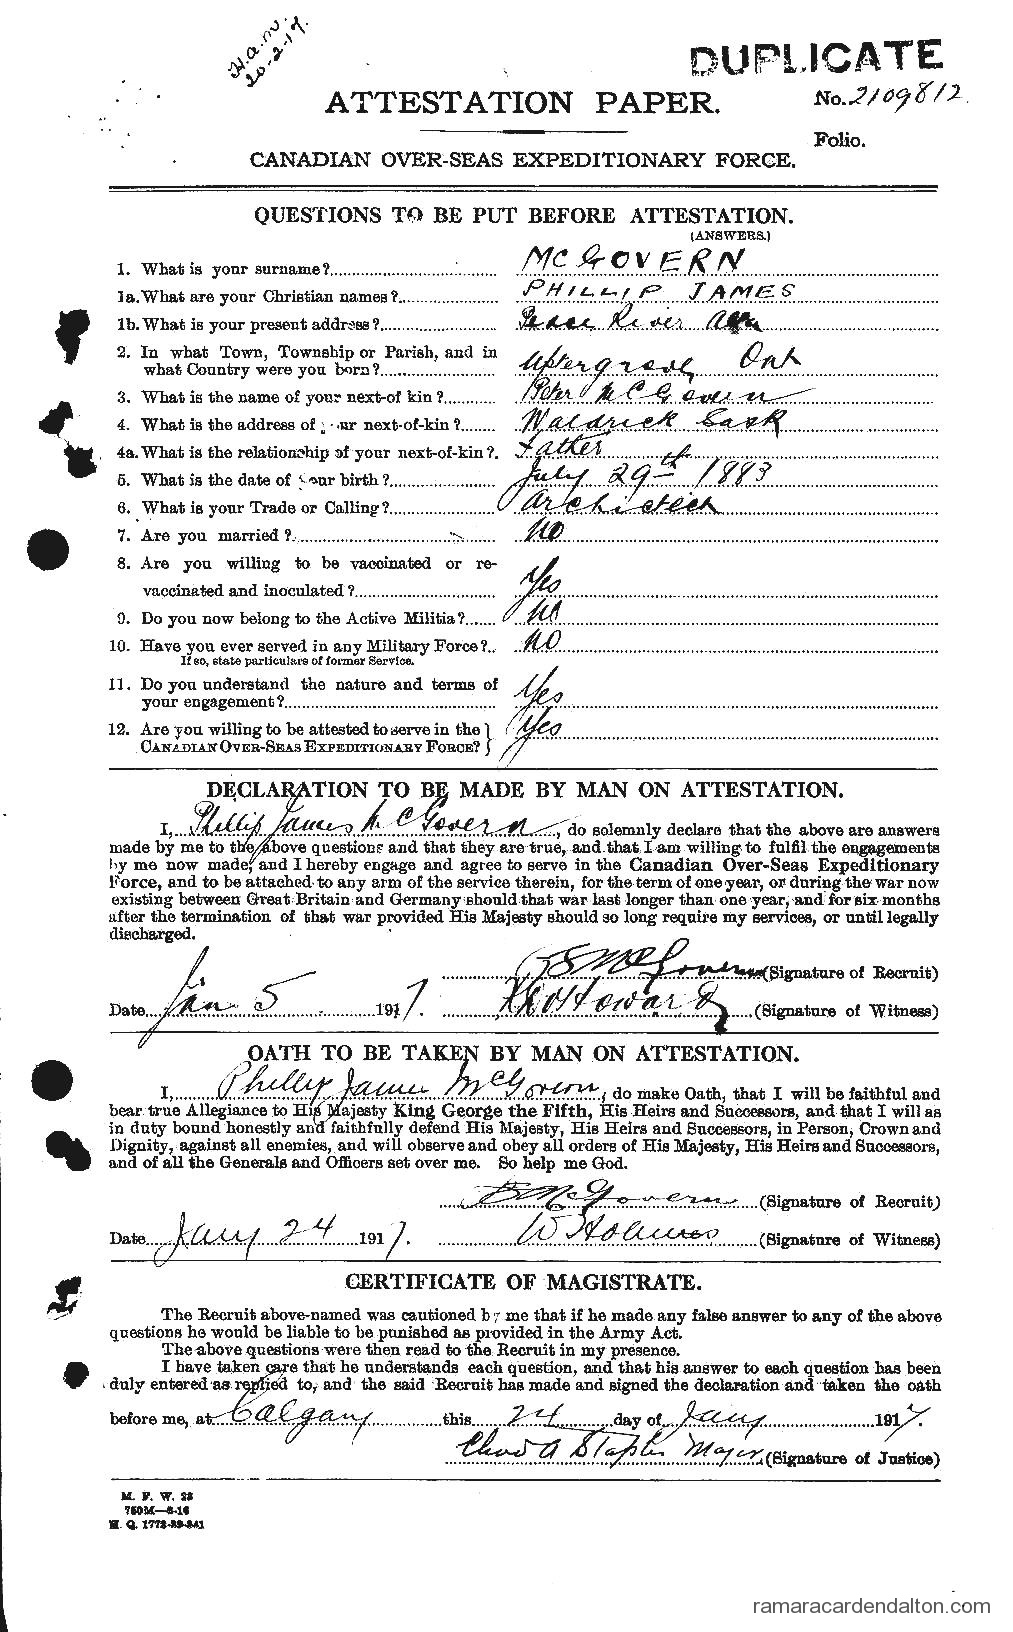 H.a.m.
20-2-17.
DUPLICATE
No. 2109812
ATTESTATION PAPER.
Folio.
CANADIAN OVER-SEAS EXPEDITIONARY FORCE.
QUESTIONS TO BE PUT BEFORE ATTESTATION.
(ANSWERS.)
1. What is your surname? McGOVERN
1a. What are your Christian names? PHILLIP JAMES
1b. What is your present address? Peace River Alta
2. In what Town, Township or Parish, and in
what Country were you born? Uptergrove Ont
3. What is the name of your next-of kin? Peter McGovern
4. What is the address of your next-of-kin? Waldrick Sask
4a. What is the relationship of your next-of-kin? Father
5. What is the date of your birth? July 29th 1883
6. What is your Trade or Calling? Archictech
7. Are you married? No
8. Are you willing to be vaccinated or re-
vaccinated and inoculated? Yes
9. Do you now belong to the Active Militia? No
10. Have you ever served in any Military Force? No
If so, state particulars of former Service.
11. Do you understand the nature and terms of
your engagement? Yes
12. Are you willing to be attested to serve in the
CANADIAN OVER-SEAS EXPEDITIONARY FORCE? Yes
DECLARATION TO BE MADE BY MAN ON ATTESTATION.
I, Phillip James McGovern, do solemnly declare that the above are answers
made by me to the above questions and that they are true, and that I am willing to fulfil the engagements
by me now made, and I hereby engage and agree to serve in the Canadian Over-Seas Expeditionary
Force, and to be attached to any arm of the service therein, for the term of one year, or during the war now
existing between Great Britain and Germany should that war last longer than one year, and for six months
after the termination of that war provided His Majesty should so long require my services, or until legally
discharged.
McGovern (Signature of Recruit)
Date Jan 5 1917. Howard (Signature of Witness)
OATH TO BE TAKEN BY MAN ON ATTESTATION.
I, Phillip James McGovern, do make Oath, that I will be faithful and
bear true Allegiance to His Majesty King George the Fifth, His Heirs and Successors, and that I will as
in duty bound honestly and faithfully defend His Majesty, His Heirs and Successors, in Person, Crown and
Dignity, against all enemies, and will observe and obey all orders of His Majesty, His Heirs and Successors,
and of all the Generals and Officers set over me. So help me God.
McGovern (Signature of Recruit)
Date Jany 24 1917. W Holmes (Signature of Witness)
CERTIFICATE OF MAGISTRATE.
The Recruit above-named was cautioned by me that if he made any false answer to any of the above
questions he would be liable to be punished as provided in the Army Act.
The above questions were then read to the Recruit in my presence.
I have taken care that he understands each question, and that his answer to each question has been
duly entered as replied to, and the said Recruit has made and signed the declaration and taken the oath
before me, at Calgary this 24 day of Jany 1917.
A Staples Major (Signature of Justice)
M. F. W. 23
750M—8-16
H. Q. 1772-39-841
ramaracardendalton.com